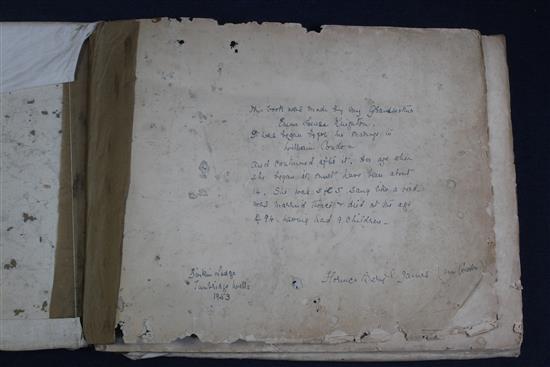 This book was made by my Grandmother
Emma Louisa Knighton.
It was began before her marriage to
William Condon
and continued after it. Her age when
she began it, must have been about
14. She was 5ft 5 sang like a bird
was married twice, & died at the age
of 94. having had 9 children.
Tunbridge Wells
1953
Florence Beryl James